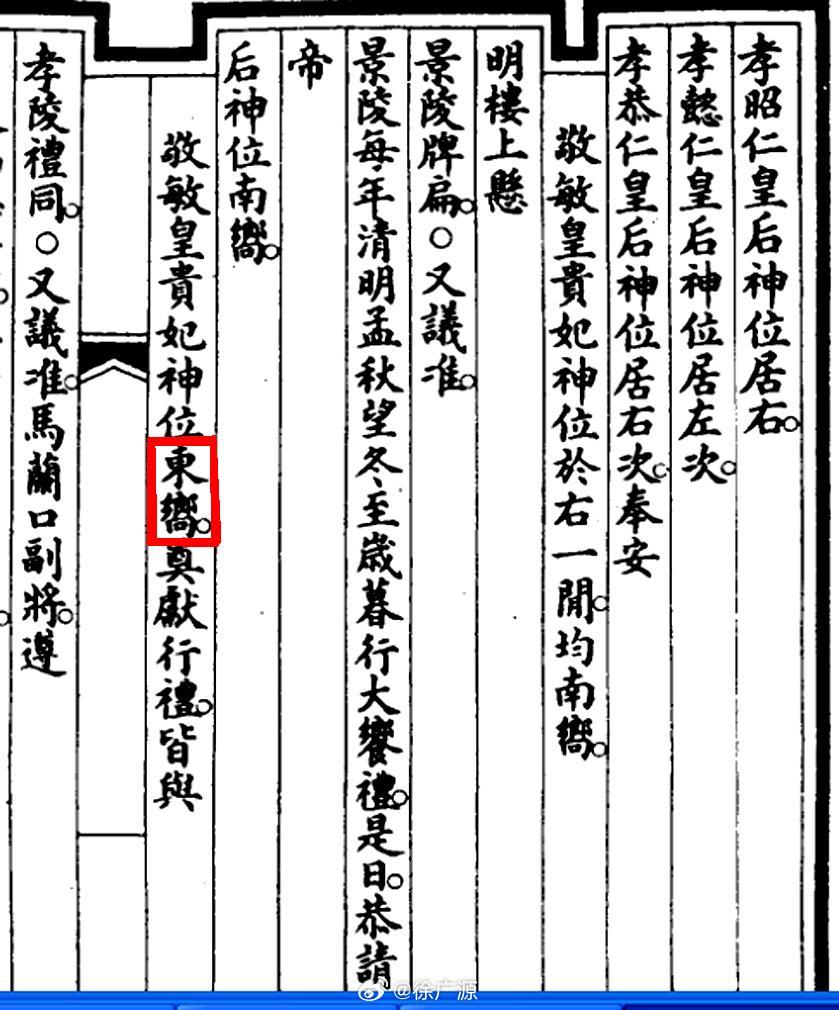 孝昭仁皇后神位居右。
孝懿仁皇后神位居左次。
孝恭仁皇后神位居右次。奉安
敬敏皇貴妃神位於右一閒。均南嚮。
明樓上懸
景陵牌扁。○又議准。
景陵每年清明孟秋望冬至歲暮行大饗禮。是日。恭請
帝
后神位南嚮。
敬敏皇貴妃神位東嚮。奠獻行禮。皆與
孝陵禮同。○又議准。馬蘭口副將。遵
@徐广源